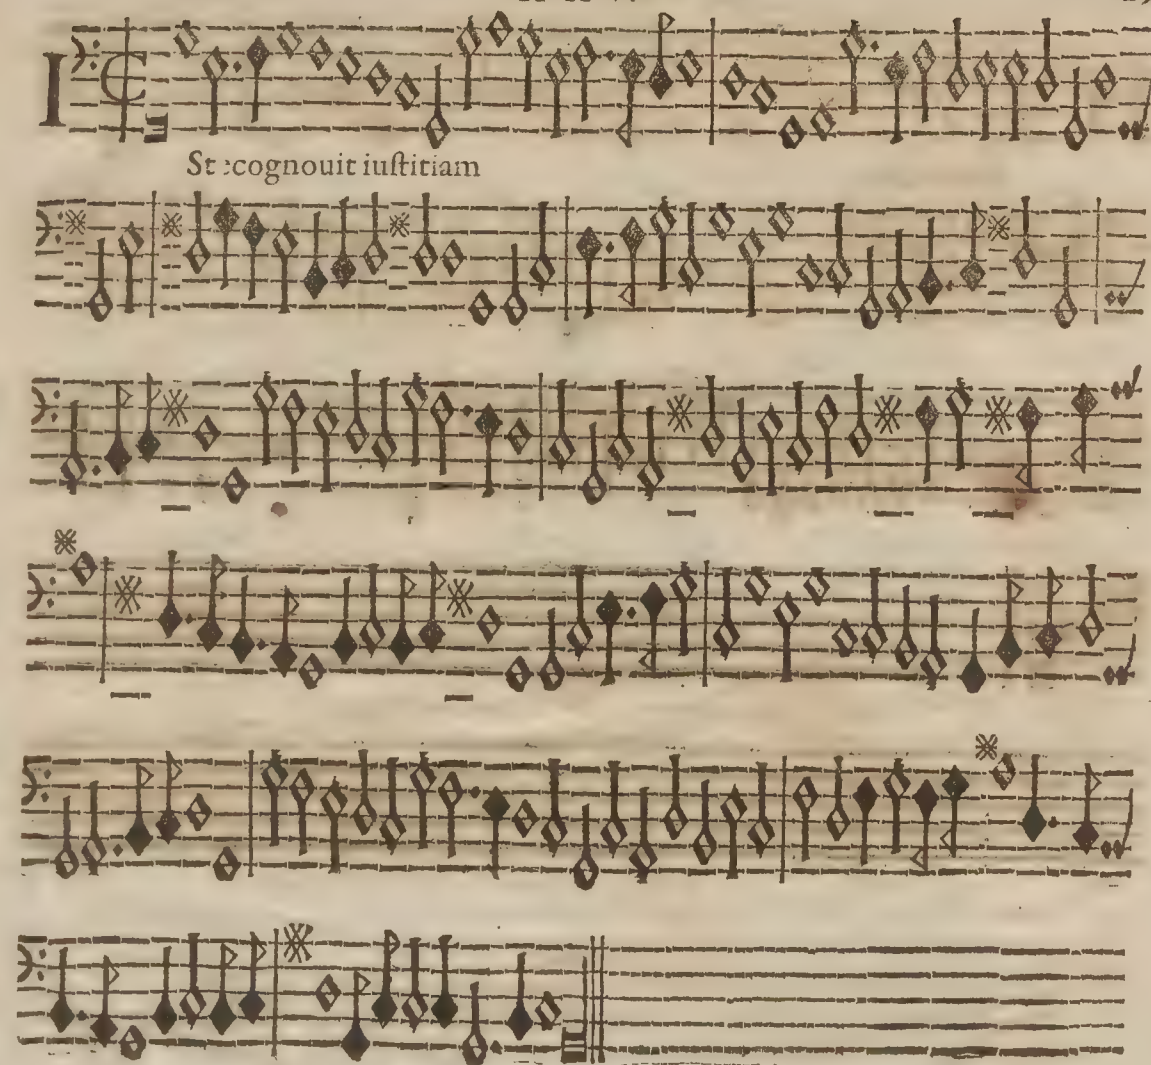 I
St cognouit iuſtitiam